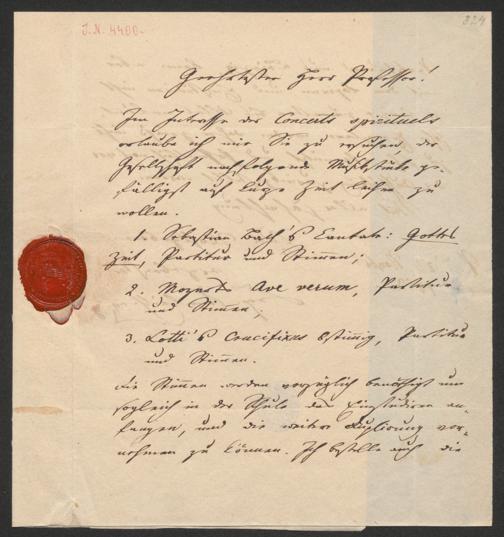 J.N. 4400.
324
Geehrtester Herr Professor!
Im Interesse der Concerts spirituels
erlaube ich mir Sie zu ersuchen, der
Gesellschaft nachfolgende Musikstücke ge-
fälligst auf kurze Zeit leihen zu
wollen.
1. Sebastian Bach's Cantate: Gottes
Zeit, Partitur und Stimen;
2. Mozarts Ave verum, Partitur
und Stimen;
3. Lotti's Crucifixus 8stimig, Partitur
und Stimen.
Die Stimen werden vorzüglich benöthigt um
sogleich in der Schule das Einstudiren an-
fangen, und die weitere Duplirung vor-
nehmen zu können. Ich bestelle auch die